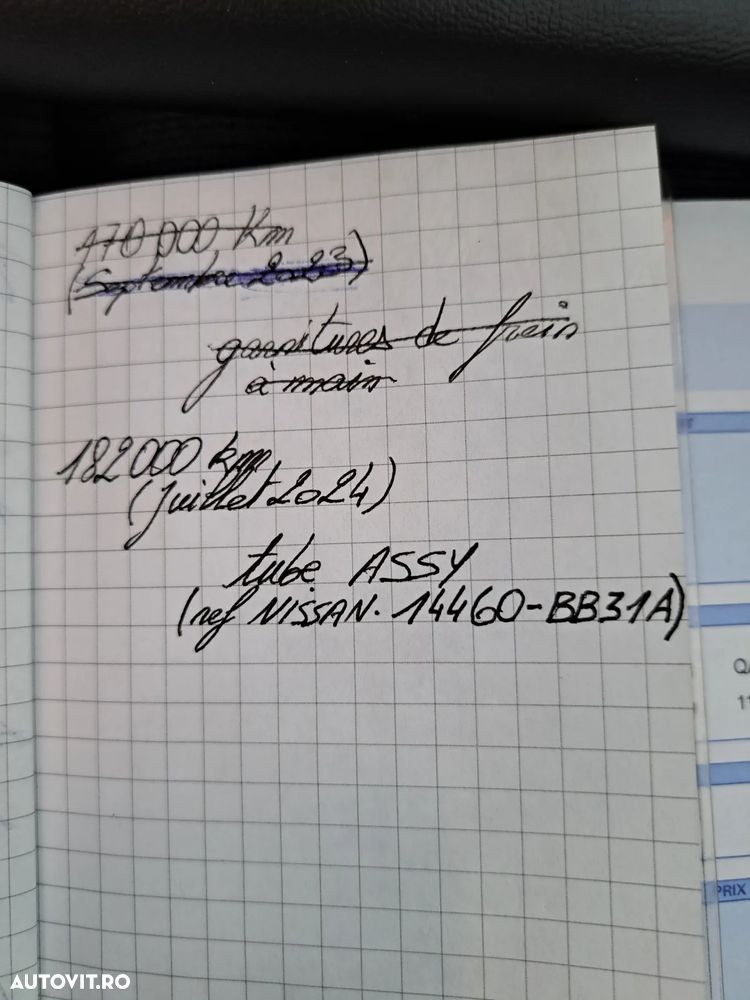 170 000 Km
(Septembre 2023)
garnitures de frein
à main
182000 km
(juillet 2024)
tube ASSY
(ref NISSAN. 14460-BB31A)
Q
11
PRIX
AUTOVIT.RO